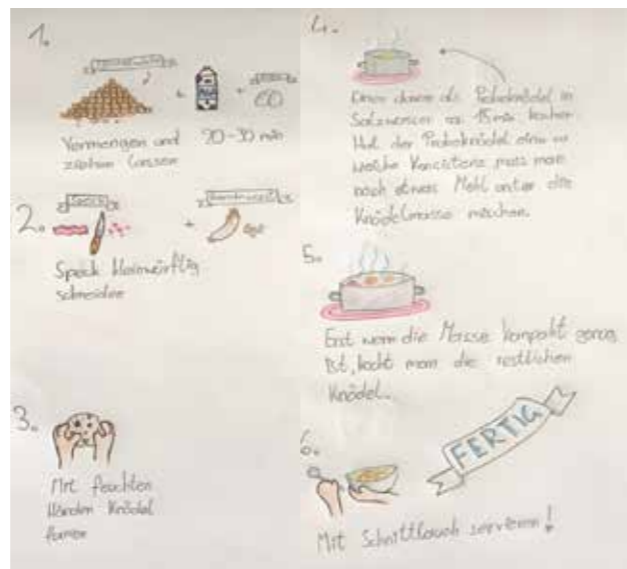 1.
+
+
Vermengen und 20-30 min
ziehen lassen
2.
Speck
+
Speck kleinwürflig
schneiden
3.
Mit feuchten
Händen Knödel
formen
4.
Einen davon als Probeknödel in
Salzwasser ca. 15 min kochen
Hat der Probeknödel eine zu
weiche Konsistenz muss man
noch etwas Mehl unter die
Knödelmasse mischen.
5.
Erst wenn die Masse kompakt genug
ist, kocht man die restlichen
Knödel.
6.
FERTIG
Mit Schnittlauch servieren!